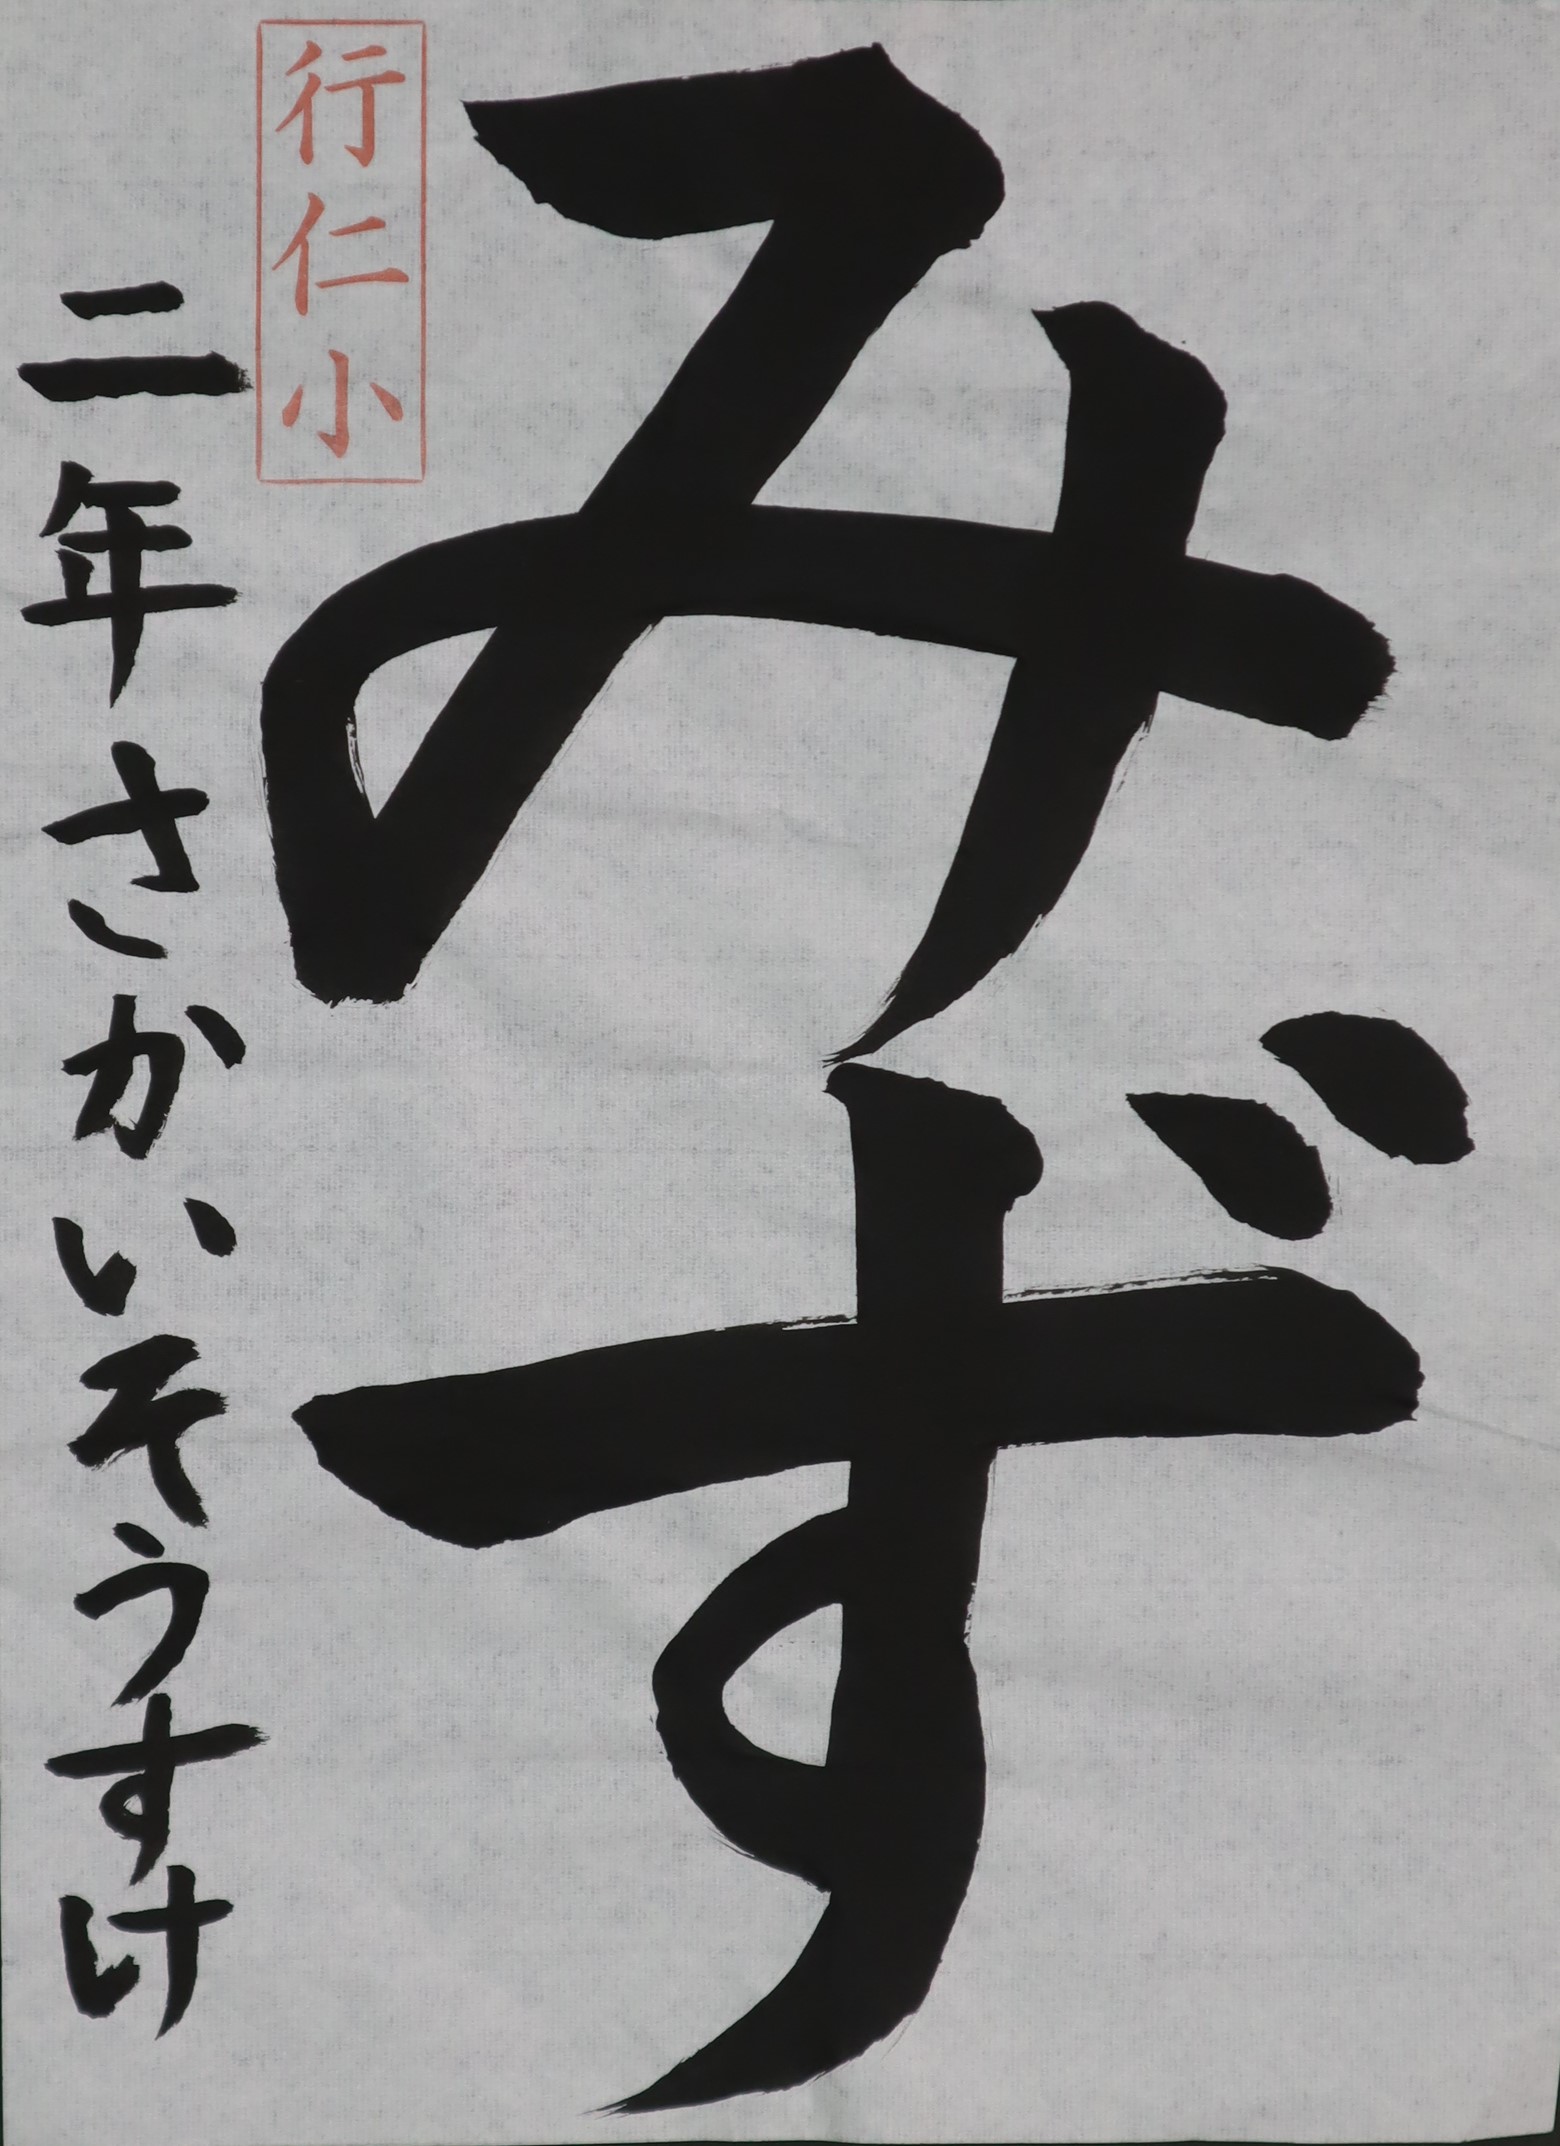 みず
行仁小
二年さかいそうすけ